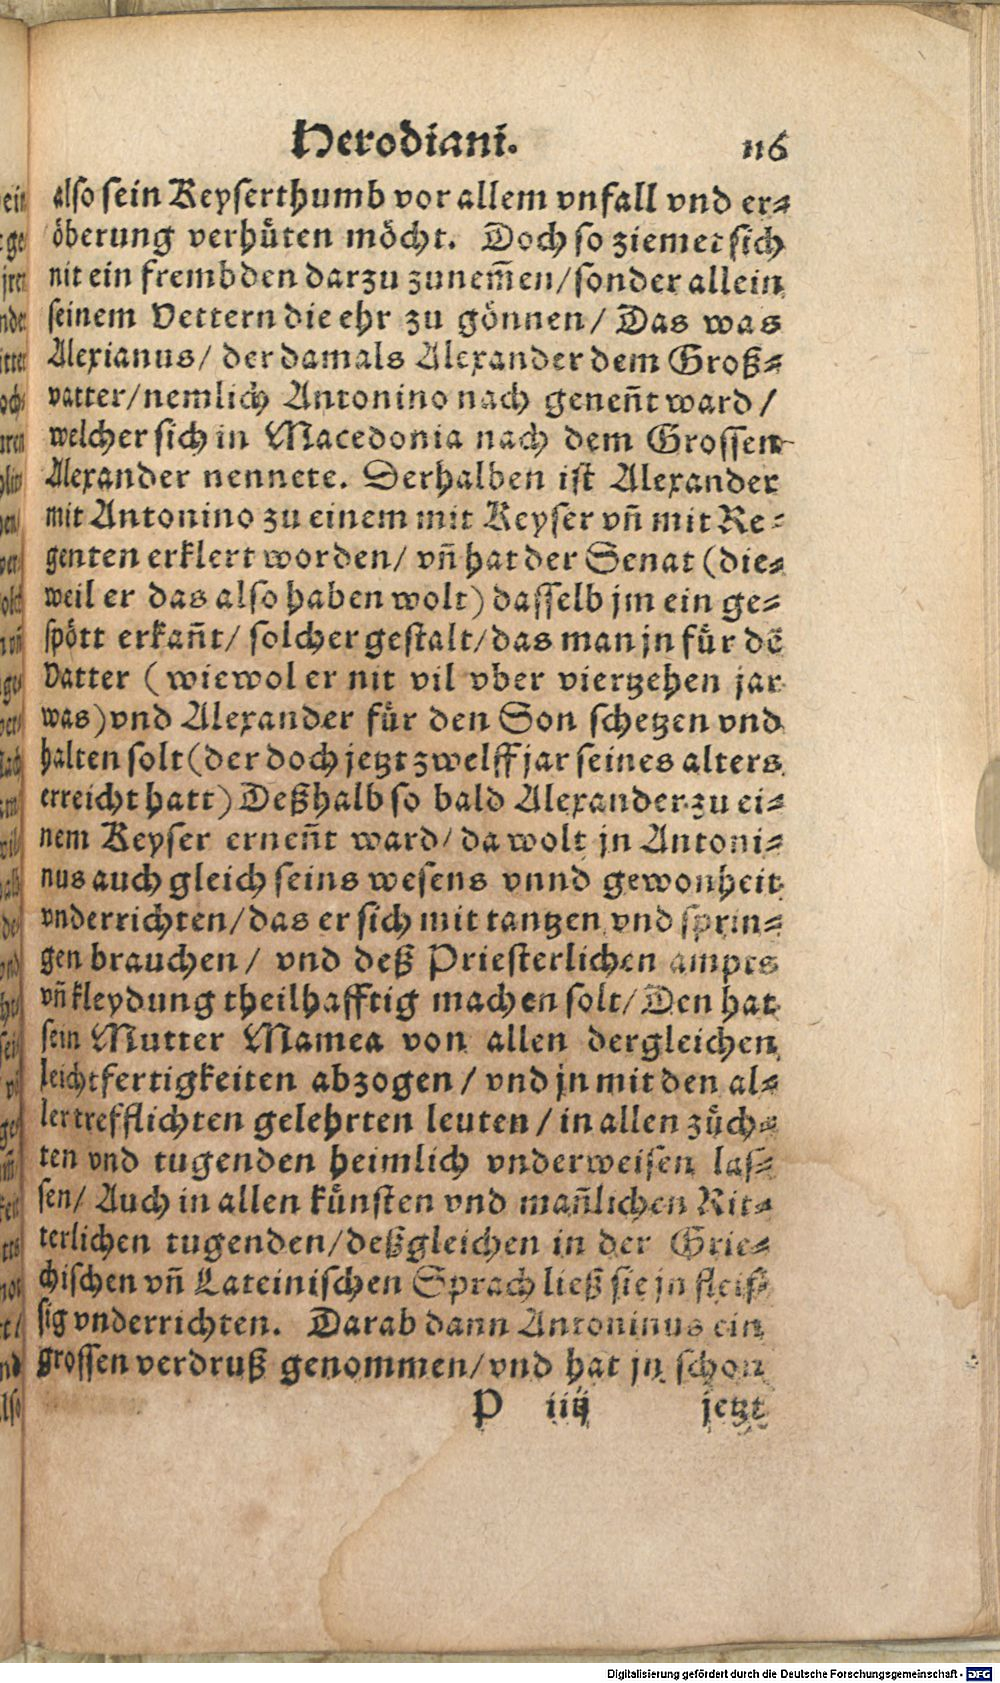 Herodiani. 116
also sein Keyserthumb vor allem vnfall vnd er⸗
öberung verhüten möcht. Doch so ziemet sich
nit ein frembden darzu zunem̃en/sonder allein
seinem Vettern die ehr zu gönnen/ Das was
Alexianus/ der damals Alexander dem Groß⸗
vatter/nemlich Antonino nach geneñt ward/
welcher sich in Macedonia nach dem Grossen
Alexander nennete. Derhalben ist Alexander
mit Antonino zu einem mit Keyser vñ mit Re⸗
genten erklert worden/ vñ hat der Senat (die⸗
weil er das also haben wolt) dasselb jm ein ge⸗
spött erkañt/ solcher gestalt/das man jn für dē
Vatter (wiewol er nit vil vber viertzehen jar
was) vnd Alexander für den Son schetzen vnd
halten solt (der doch jetzt zwelff jar seines alters
erreicht hatt) Deßhalb so bald Alexander zu ei⸗
nem Keyser erneñt ward/ da wolt jn Antoni⸗
nus auch gleich seins wesens vnnd gewonheit
vnderrichten/das er sich mit tantzen vnd sprin⸗
gen brauchen/ vnd deß Priesterlichen ampts
vñ kleydung theilhafftig machen solt/ Den hat
sein Mutter Mamea von allen dergleichen
leichtfertigkeiten abzogen/ vnd jn mit den al⸗
lertrefflichten gelehrten leuten/ in allen züch⸗
ten vnd tugenden heimlich vnderweisen las⸗
sen/ Auch in allen künsten vnd mañlichen Rit⸗
terlichen tugenden/deßgleichen in der Grie⸗
chischen vñ Lateinischen Sprach ließ sie jn fleis⸗
sig vnderrichten. Darab dann Antoninus ein
grossen verdruß genommen/vnd hat jn schon
P iiij jetzt
Digitalisierung gefördert durch die Deutsche Forschungsgemeinschaft - DFG